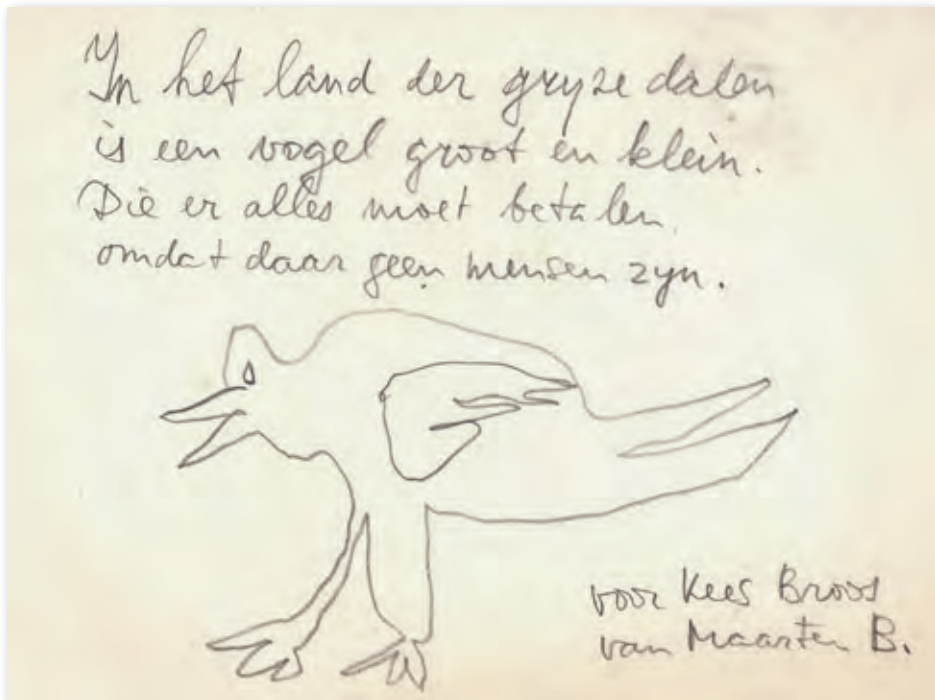 In het land der gryze dalen
is een vogel groot en klein.
Die er alles moet betalen,
omdat daar geen mensen zyn.
voor Kees Broos
van Maarten B.